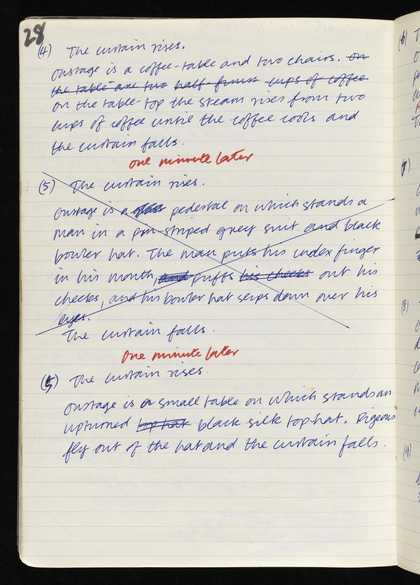 28
(4) The curtain rises.
Onstage is a coffee-table and two chairs. On
the table are two half-finished cups of coffee
on the table-top the steam rises from two
cups of coffee until the coffee cools and
the curtain falls.
One minute later
(5) The curtain rises.
Onstage is a pedestal on which stands a
man in a pin-striped grey suit and black
bowler hat. The man puts his index finger
in his mouth, and puffs his cheeks out his
cheeks, and his bowler hat seeps down over his
eyes.
The curtain falls.
One minute later
(5) The curtain rises
Onstage is a small table on which stands an
upturned top hat black silk top hat. Pigeons
fly out of the hat and the curtain falls.